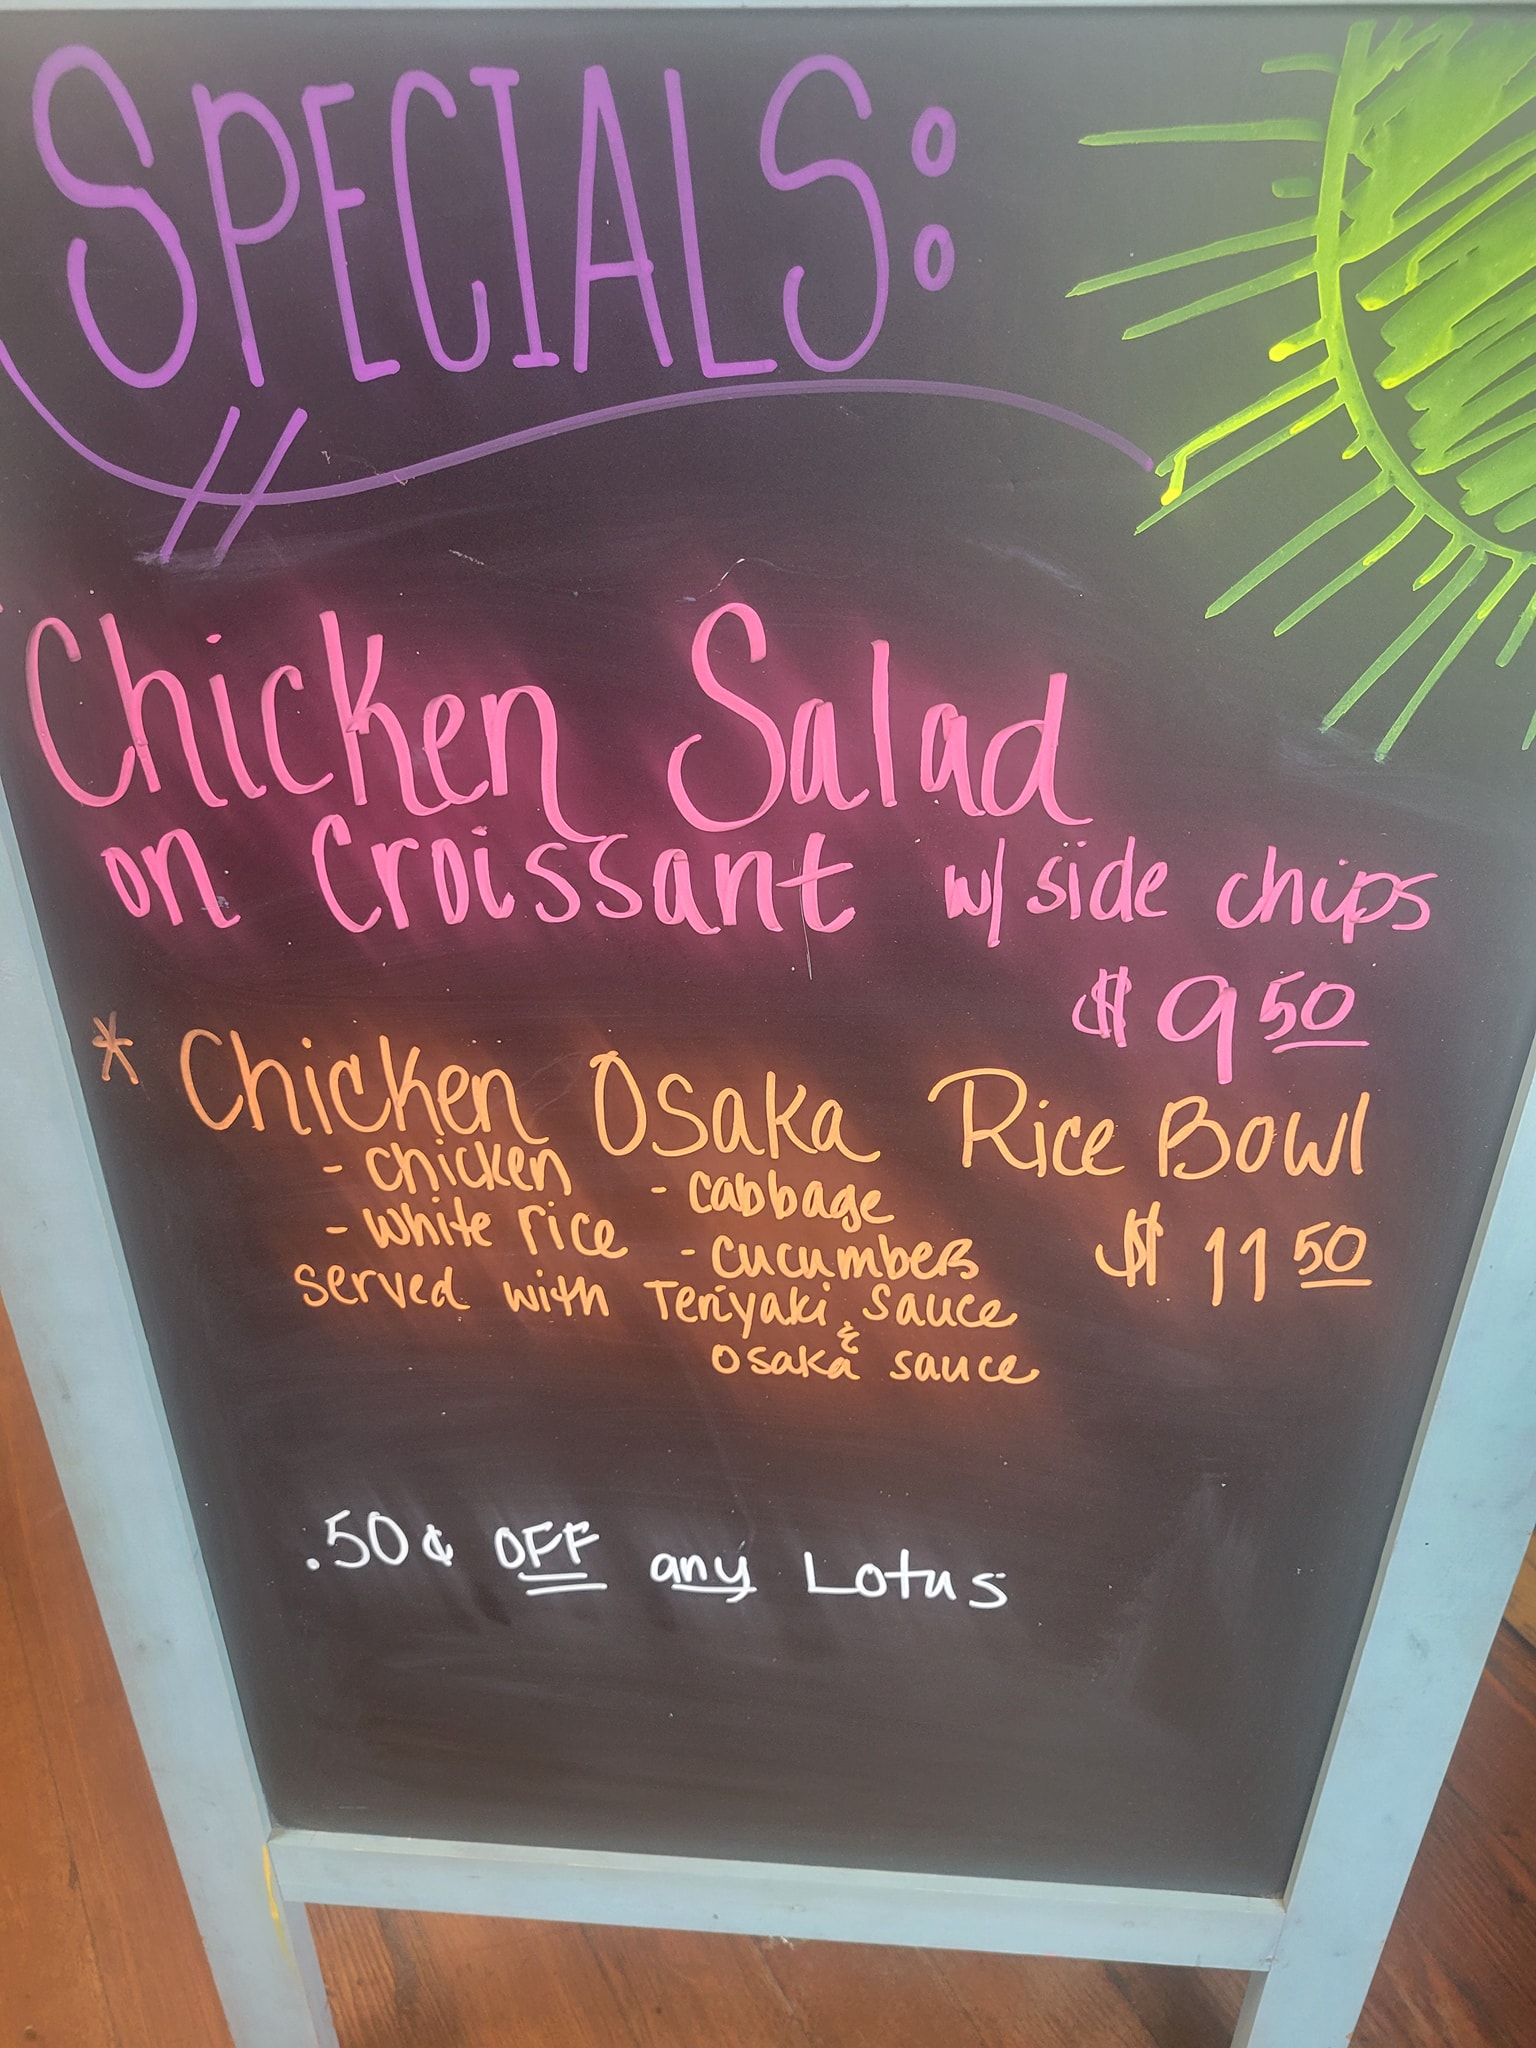 SPECIALS:
Chicken Salad
on Croissant w/ side chips
$9.50
* Chicken Osaka Rice Bowl
- chicken - cabbage
- white rice - cucumbers
$11.50
served with Teriyaki sauce
& osaka sauce
.50¢ OFF any Lotus